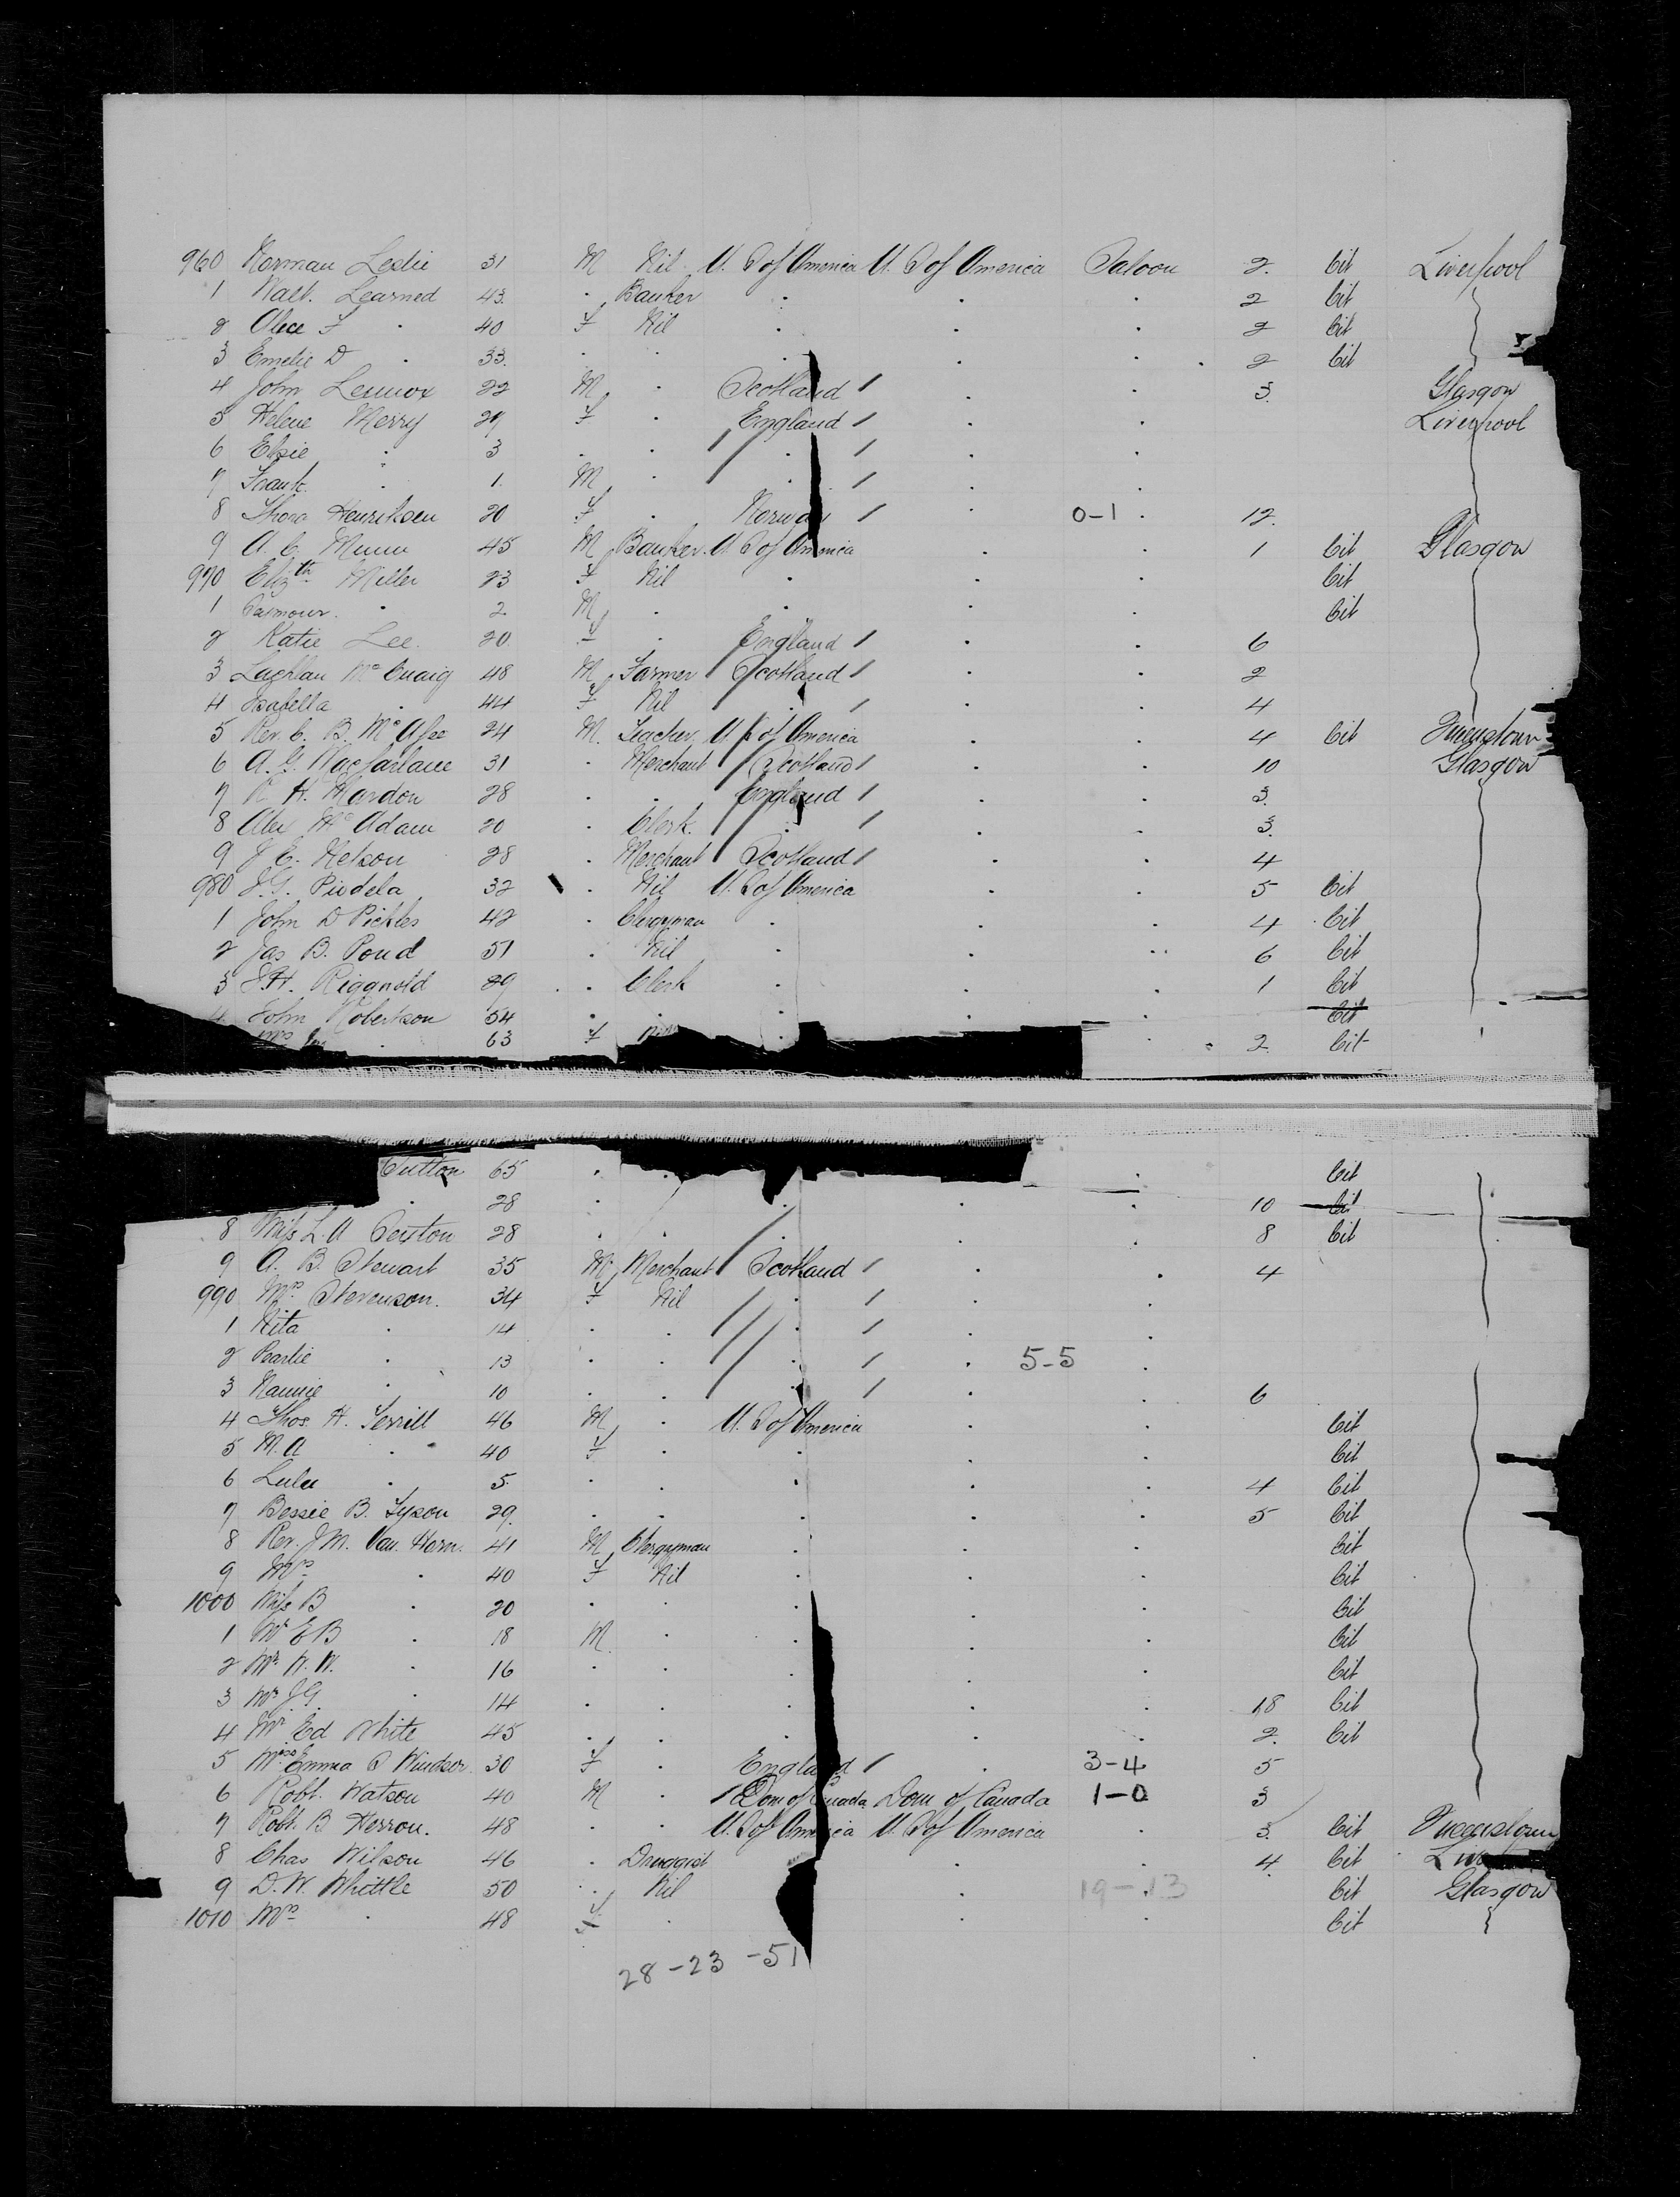 960 Norman Leslie 31 M Nil U. S of America U. S of America Saloon 2. Cit Liverpool
1 Walt. Learned 43. . Banker . . . 2 Cit
2 Alice F . 40 F Nil . . . 2 Cit
3 Emelie D . 33. . . . . . 2 Cit
4 John Lennox 22 M . Scotland / . . 3. Glasgow
5 Helene Merry 29 F . England / . . Liverpool
6 Elsie . 3 . . . / . .
7 Frank . 1. M . . / . .
8 Thora Henriksen 20 F . Norway / . 0-1 . 12.
9 A. C. Munn 45 M Banker. U. S of America . . 1 Cit Glasgow
970 Elizth Miller 23 F Nil . . . Cit
1 . 2 M . . . . Cit
2 Katie Lee. 20. F . England / . . 6
3 Lachlan McCuaig 48 M Farmer Scotland / . . 2
4 Isabella . 44 F Nil . / . . 4
5 Rev. C. B. McAfee 24 M. Teacher. U S of America . . 4 Cit Queenstown
6 A. G. Macfarlane 31 . Merchant Scotland / . . 10 Glasgow
7 H. Mardon 28 . . England / . . 3.
8 Alex McAdam 20 . Clerk. . / . . 3.
9 J. C. Nelson 28 . Merchant Scotland / . . 4
980 J. G. 32 . Nil U. S of America . . 5 Cit
1 John D Pickles 42 . Clergyman . . . 4 Cit
2 Jas B. Pond 51 . Nil . . . 6 Cit
3 29 . Clerk . . . 1 Cit
4 John Robertson 54 . . . . . Cit
Mrs . 63 F . . 2. Cit
Sutton 65 . . . Cit
. 28 . . . . 10 Cit
8 Miss L. A 28 . . . . 8 Cit
9 A. B. Stewart 35 M Merchant Scotland / . . 4
990 Mrs Stevenson. 34 F Nil . / . .
1 Nita . 14 . . . / . .
2 Pearlie . 13 . . . / . 5-5 .
3 Nannie . 10 . . . / . . 6
4 Thos. H. Terrill 46 M . U. S of America . Cit
5 M. A . 40 F . . . . Cit
6 Lulu . 5. . . . . . 4 Cit
7 Bessie B. Tyson 29. . . . . . 5 Cit
8 Rev. J M. Van. Horn. 41 M Clergyman . . . Cit
9 Mrs . 40 F Nil . . . Cit
1000 Miss B . 20 . . . . . Cit
1 Mr E B . 18 M . . . . Cit
2 Mr W. W. . 16 . . . . . Cit
3 Mr J G . 14 . . . . . 18 Cit
4 Mr Ed White 45 . . . . . 2. Cit
5 Emma Windsor 30 F . England / . 3-4 5
6 Robt. Watson 40 M . / Dom of Canada Dom of Canada 1-0 3
7 Robt. B Herron. 48 . . U. S of America U. S of America . 3. Cit Queenstown
8 Chas Wilson 46 . Druggist . . 4 Cit
9 D. W. Whittle 50 . Nil . 19-13 Cit Glasgow
1010 Mrs . 48 F . . . Cit
28-23-51